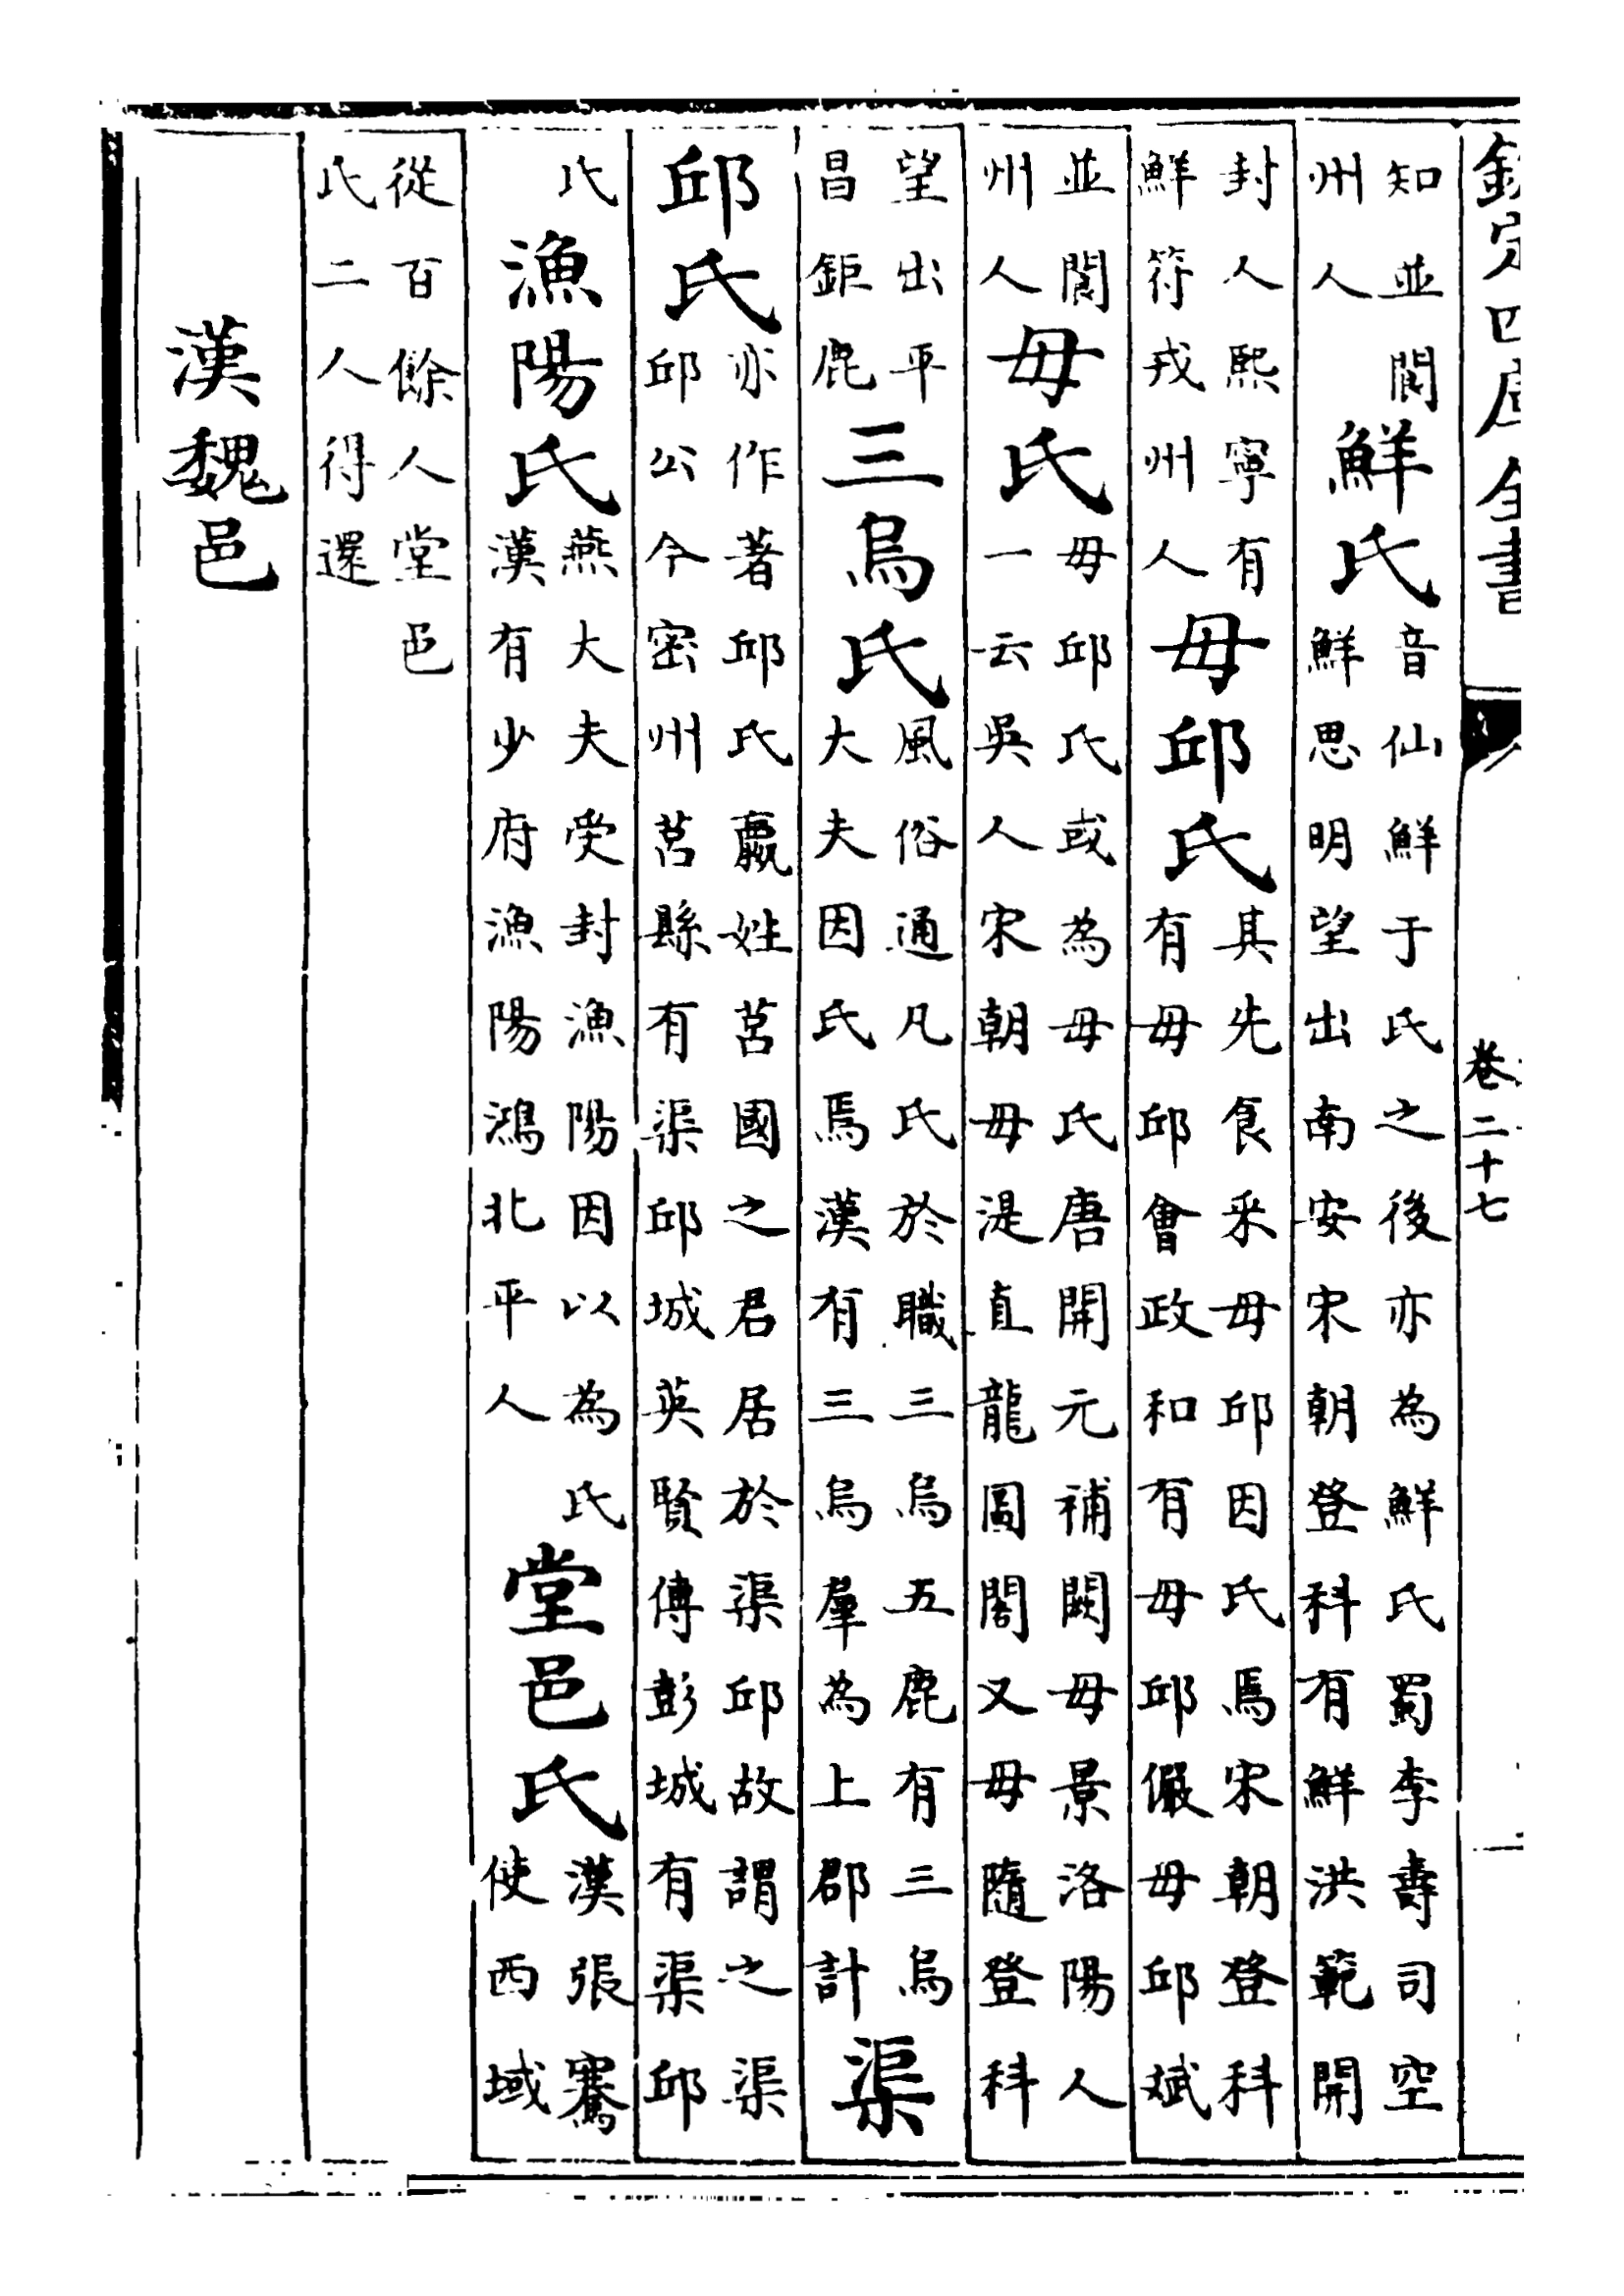 欽定四庫全書
卷二十七
知並閬
州人
鮮氏
音仙鮮于氏之後亦為鮮氏蜀李壽司空
鮮思明望出南安宋朝登科有鮮洪範開
封人熙寧有
鮮符戎州人
毋邱氏
其先食采毋邱因氏焉宋朝登科
有毋邱會政和有毋邱儼毋邱斌
並閬
州人
毋氏
毋邱氏或為毋氏唐開元補闕毋景洛陽人
一云吳人宋朝毋湜直龍圖閣又毋隨登科
望出平
昌鉅鹿
三烏氏
風俗通凡氏於職三烏五鹿有三烏
大夫因氏焉漢有三烏羣為上郡計
渠
邱氏
亦作著邱氏嬴姓莒國之君居於渠邱故謂之渠
邱公今密州莒縣有渠邱城英賢傳彭城有渠邱
氏
漁陽氏
燕大夫受封漁陽因以為氏
漢有少府漁陽鴻北平人
堂邑氏
漢張騫
使西域
從百餘人堂邑
氏二人得還
漢魏邑